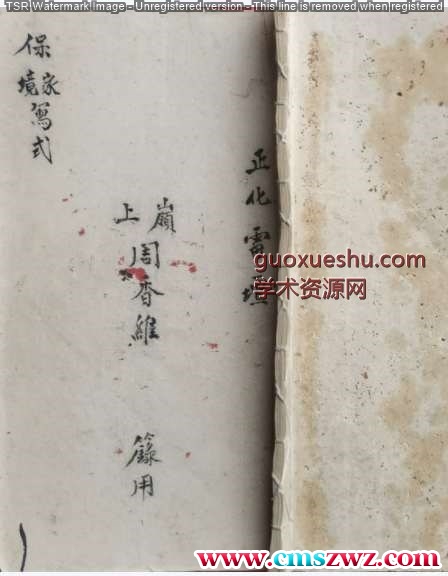 TSR Watermark Image - Unregistered version - This line is removed when registered
正化雷壇
嶺上周香維 籙用
保家境寫式
guoxueshu.com
学术资源网
www.cmszwz.com